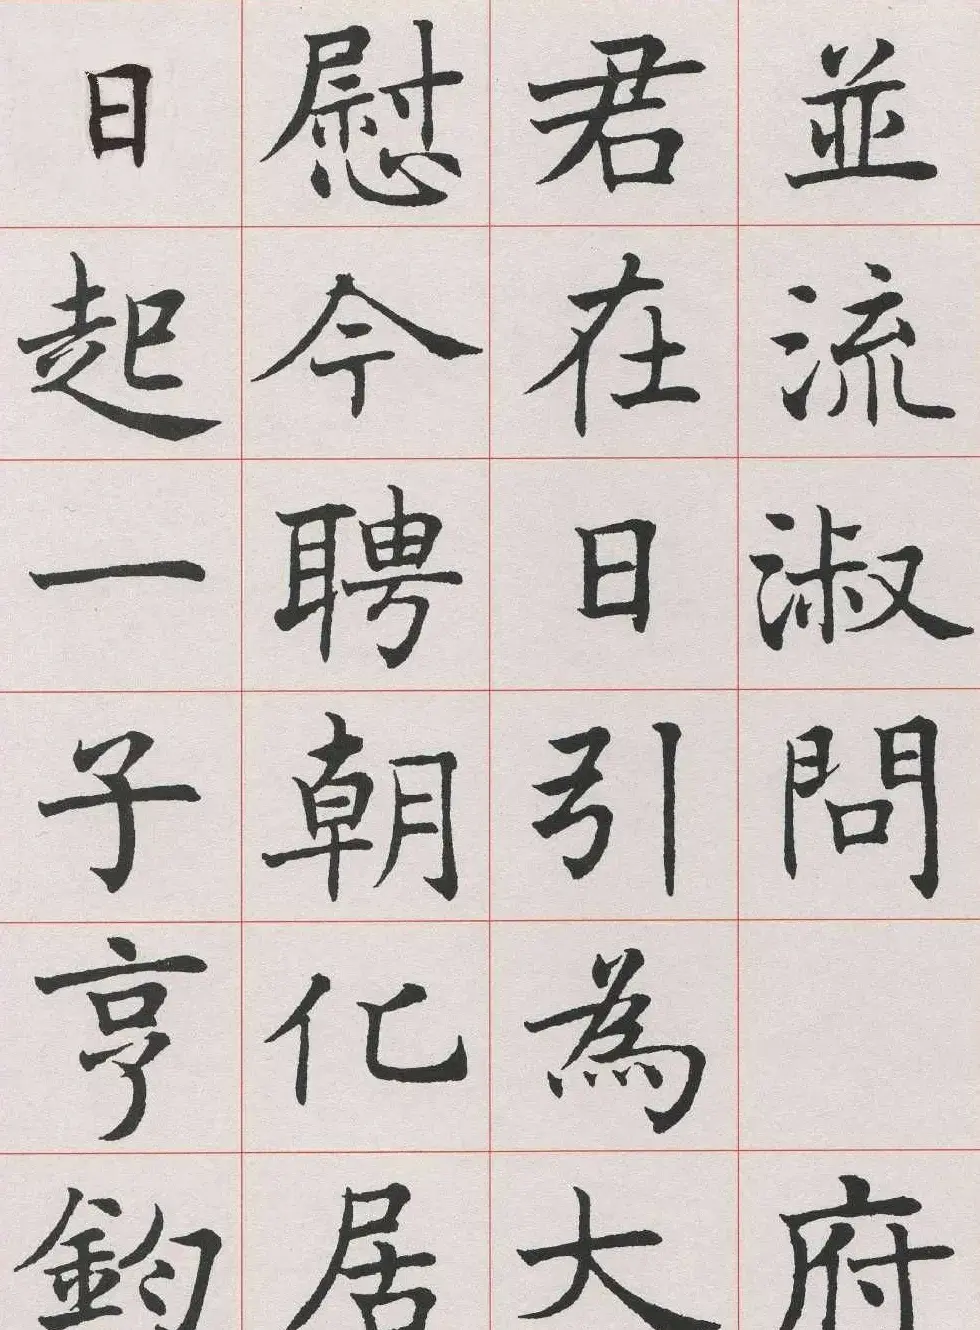 並流淑問　府
君在日引為大
慰今聘朝化居
日起一子亨鈞